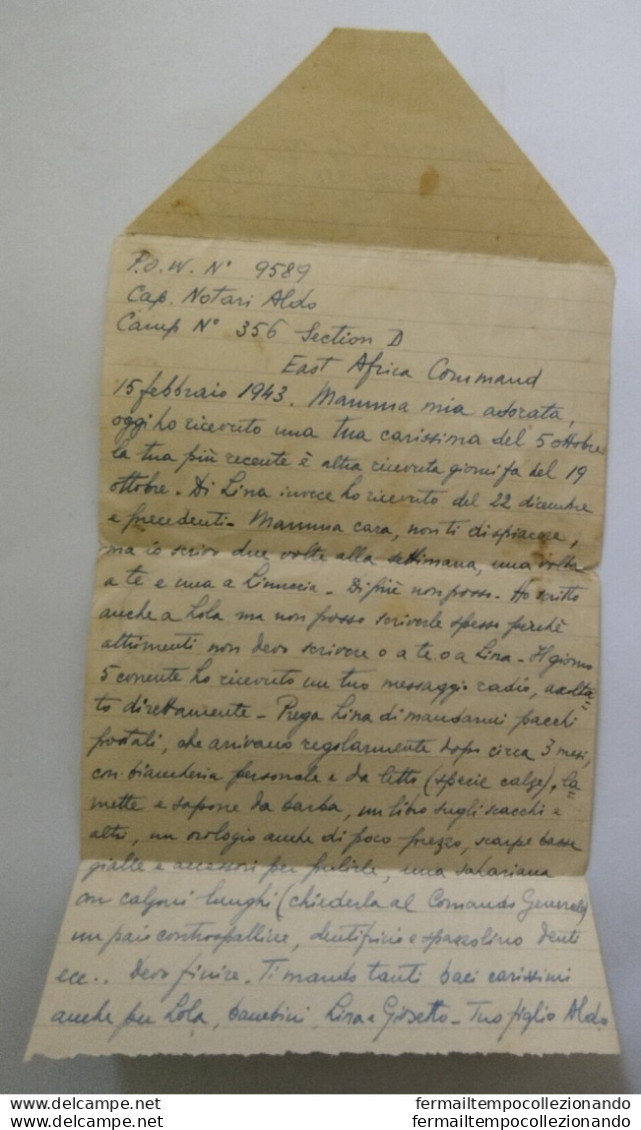 P.O.W. N° 9589
Cap. Notari Aldo
Camp N° 356 Section D
East Africa Command
15 febbraio 1943. Mamma mia adorata,
oggi ho ricevuto una tua carissima del 5 ottobre
la tua più recente è altra ricevuta giorni fa del 19
ottobre. Di Lina invece ho ricevuto del 22 dicembre
e precedenti. Mamma cara, non ti dispiacere,
ma io scrivo due volte alla settimana, una volta
a te e una a Linuccia. Di più non posso. Ho scritto
anche a Lola ma non posso scriverle spesso perchè
altrimenti non devo scrivere o a te o a Lina. Il giorno
5 corrente ho ricevuto un tuo messaggio radio, ascolta=
to direttamente. Prega Lina di mandarmi pacchi
postali, che arrivano regolarmente dopo circa 3 mesi,
con biancheria personale e da letto (specie calze), la=
mette e sapone da barba, un libro sugli scacchi e
altri, un orologio anche di poco prezzo, scarpe basse
gialle e accessori per pulirle, una sahariana
con calzoni lunghi (chiederla al Comando Generale)
un paio controspalline, dentifricio e spazzolino denti
ecc.. Devo finire. Ti mando tanti baci carissimi
anche per Lola, bambini, Lina e Giosetto. Tuo figlio Aldo
fermailtempocollezionando fermailtempocollezionando
fermailtempocollezionando fermailtempocollezionando